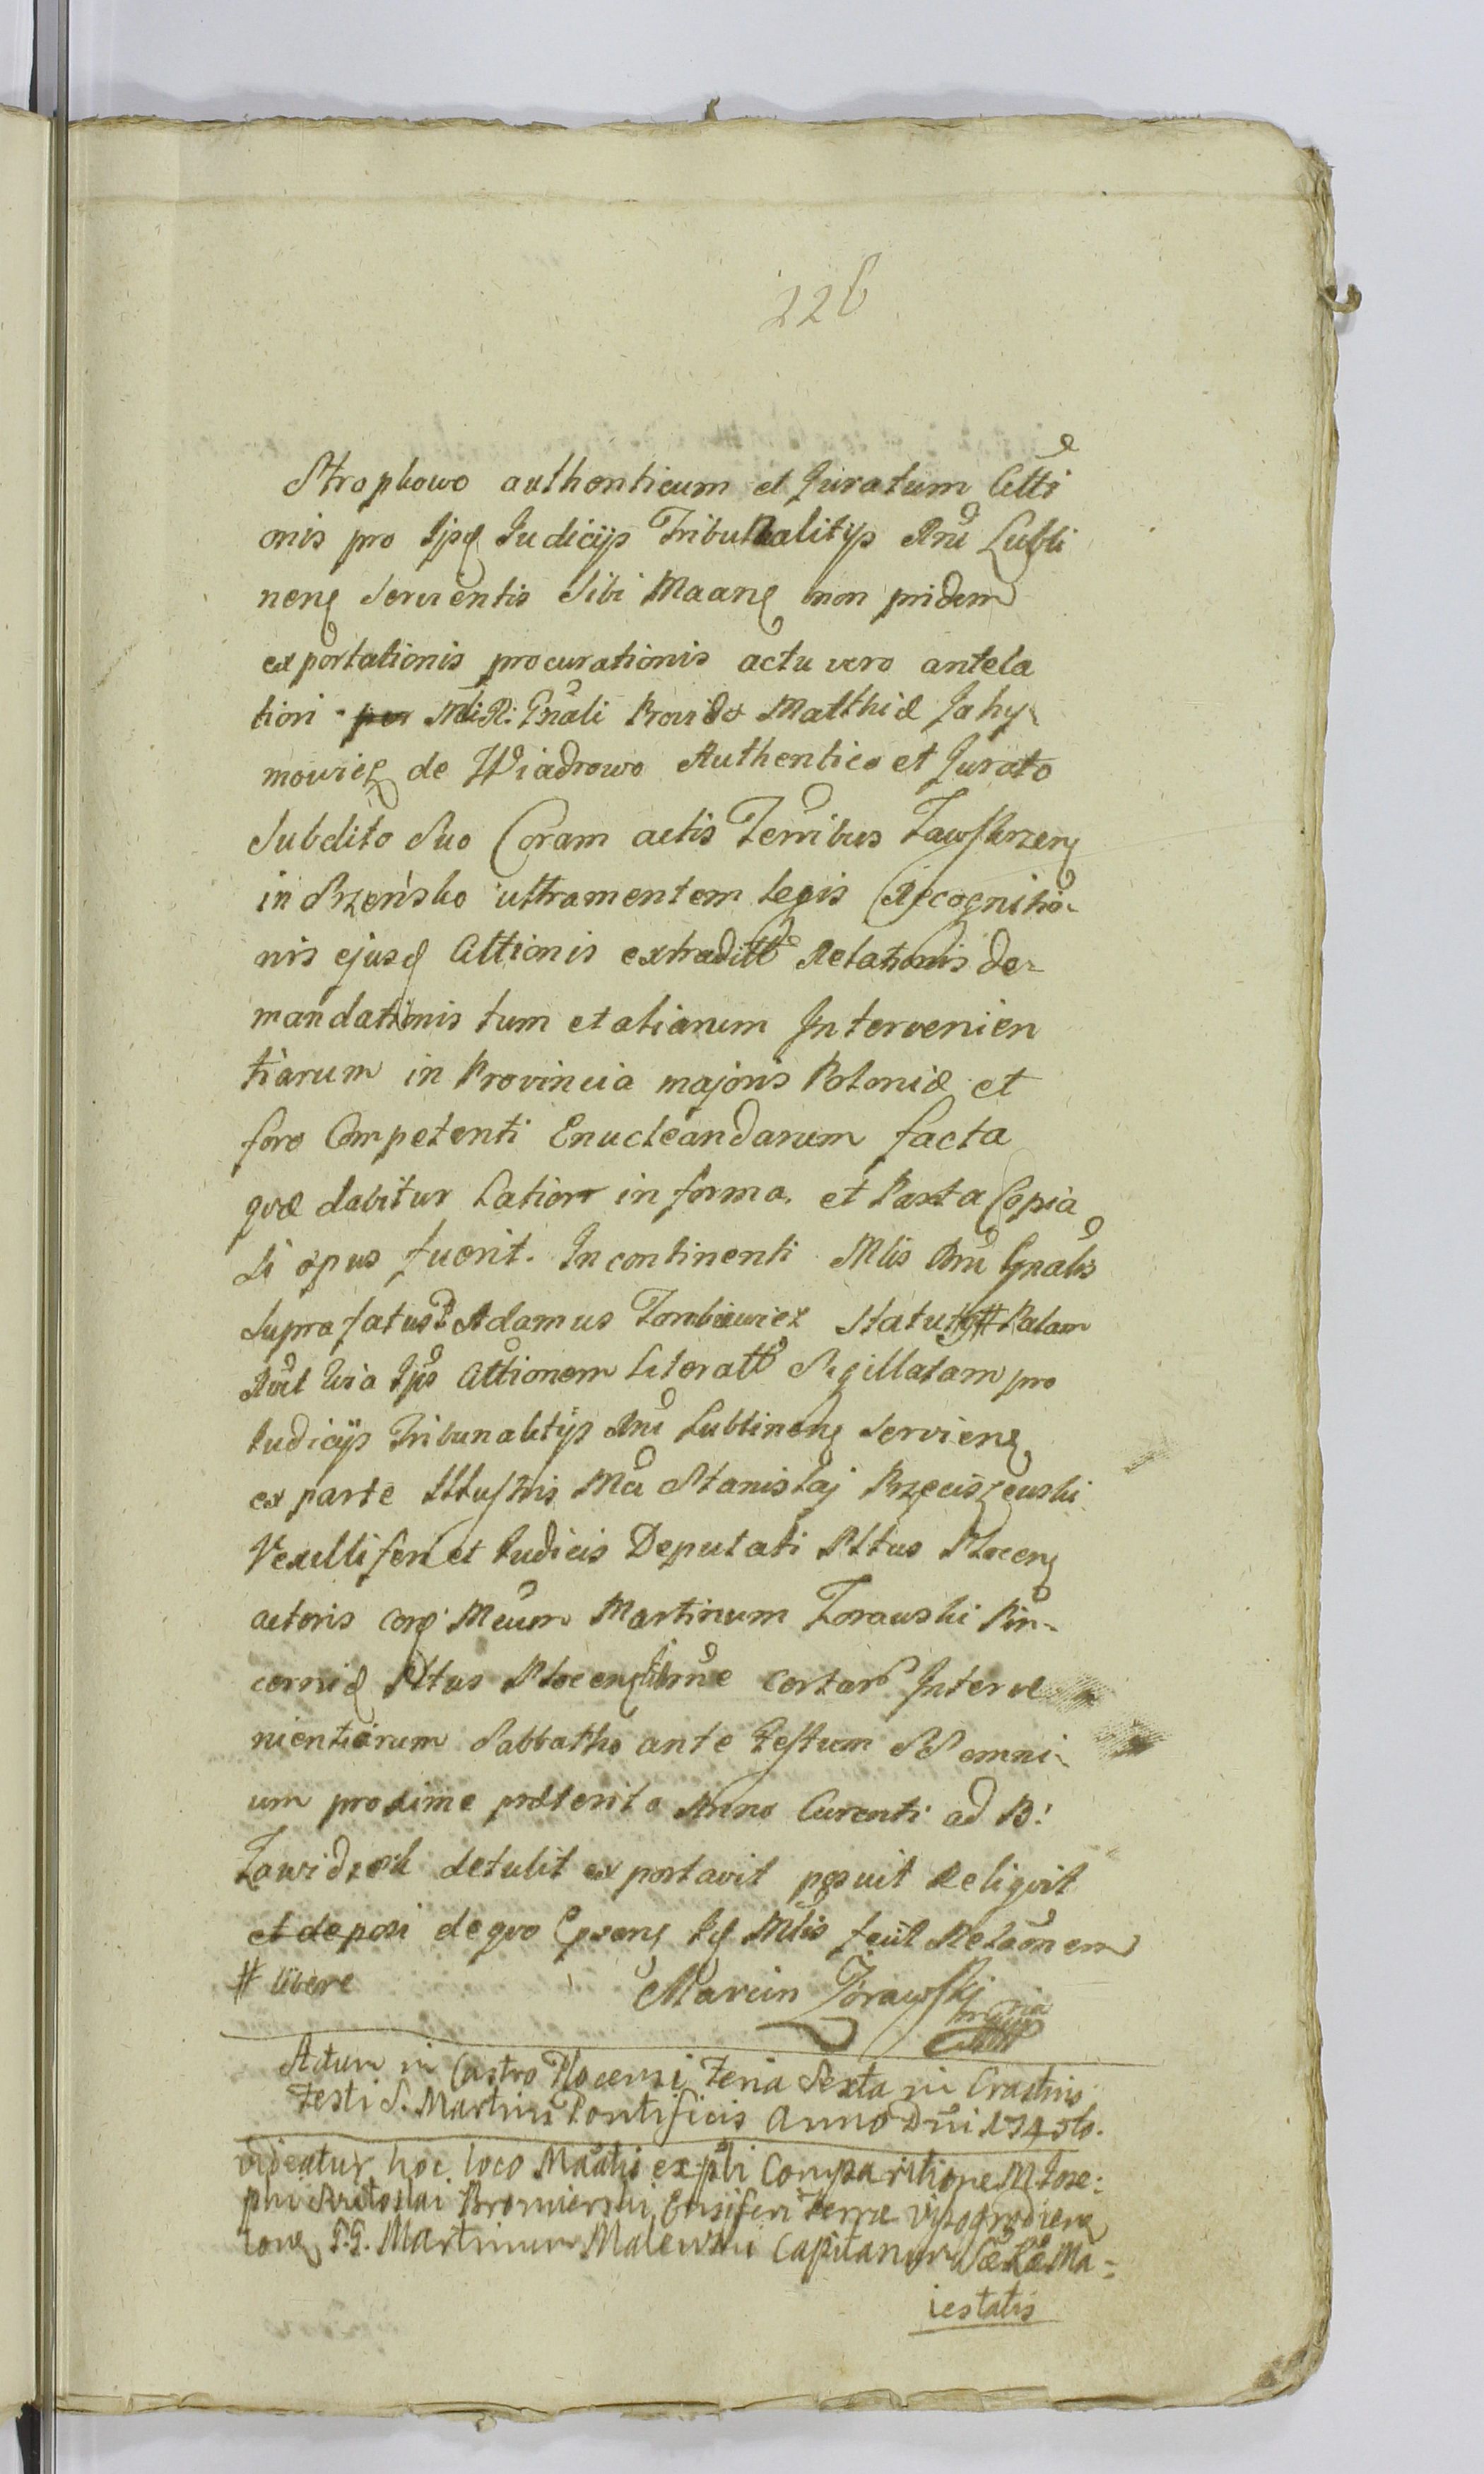 226
Stropkowo authenticum et Juratum Atti
onis pro Jpsq Judicijs Tribunalitijs Rni Lubli
nenq servientis Sibi Maanq non pridem
exportationis procurationis actu vero antela
tiori per Mli R: Gnali Provido Matthiæ Jahy
mowicz de Wiadrowo Authentico et Jurato
Subdito Suo Coram actis Terribus Zawskrzenq
in Srzeńsko ultramentem legis Recognitio-
nis ejusq Attionis extraditæ Relationis de-
mandationis tum et aliarum Intervenien
tiarum in Provincia majoris Poloniæ et
foro Competenti Enucleandarum facta
quæ dabitur Latior in forma et Parata Copia
si opus fuerit. In continenti Mlis Rni Gnalis
Suprafatus Adamus Tombiewicz # Palam
Attionem Literatt Sigillatam pro
Judicijs Tribunalitijs Rni Lublinenq Servienq
ex parte Illustris Mci Stanislaj Przeciszewski
Vexilliferi et Judicis Deputati Pltus Plocenq
actoris conq Mcum Martinum Zorawski Pin-
cernidq Pltus Plocenq certar Interve
nientiarum Sabbatho ante Festum SS omni-
um proxime præterito Anno Curenti ad B:
Zawidzek detulit exportavit posuit Reliqvit
et deposi deqvo Epsenq Jq Mlis fecit Relaonem
# libere
Marcin Zorawski
mppria
Actum in Castro Plocensi Feria Sexta in Crastino
Festi S. Martini Pontificis Anno Dni 174
videatur hoc loco Maatio ex pti Comparitione M Jose:
phi Bromierski Ensiferi Terræ Vissogrodienq
conq G. G. Martinum Malewski Capitaneum Sæ Ræ Ma=
iestatis